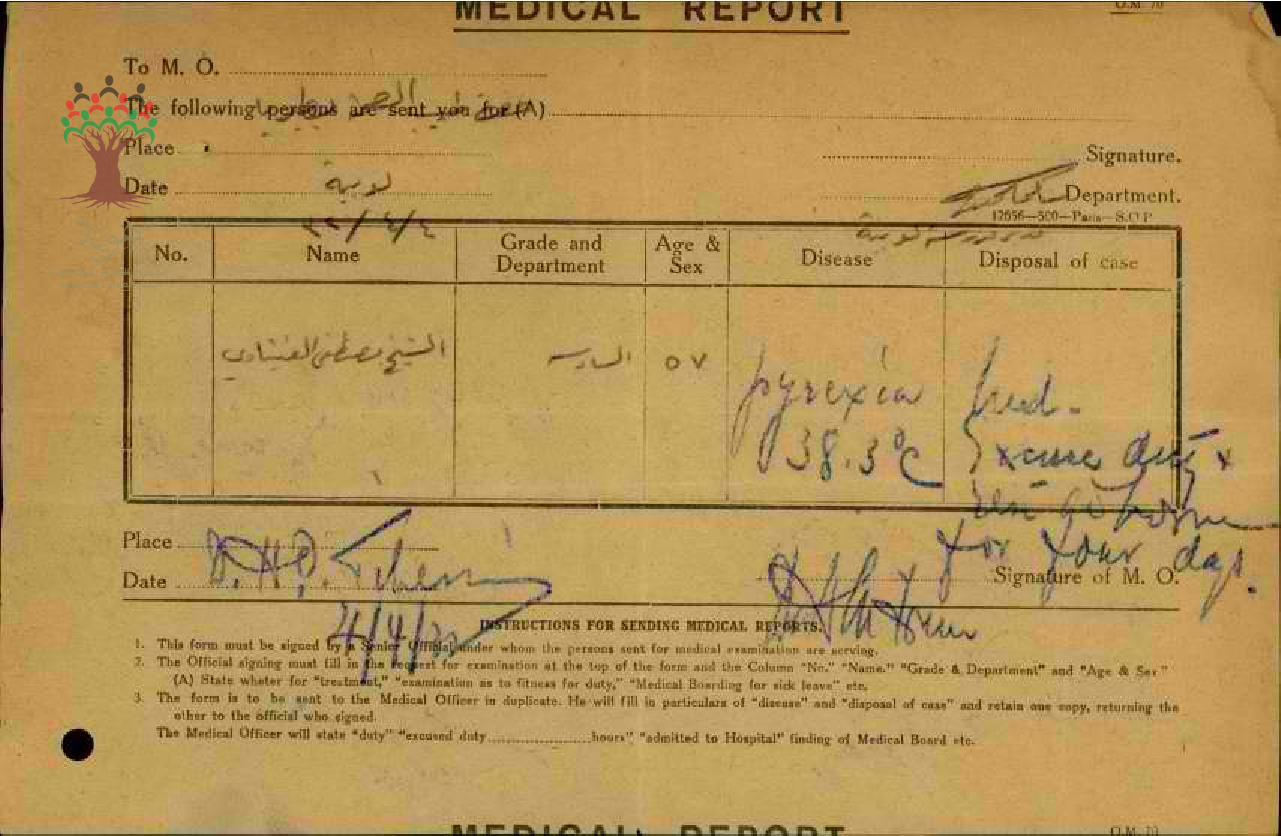 MEDICAL REPORT
O.M. 70
To M. O.
The following persons are sent you for (A)
Place
Signature.
Date لوبية
Department.
12656—500—Paris—S.O.P.
٣٢/٤/٤
No. Name Grade and Department Age & Sex Disease Disposal of case
الشيخ مصطفى السادسه ٥٧ pyrexia
38.3°C Excuse duty &
home
Place for four days.
Date D.H.O. Tiberias Signature of M. O.
4/4/32
INSTRUCTIONS FOR SENDING MEDICAL REPORTS.
1. This form must be signed by a Senior Official under whom the persons sent for medical examination are serving.
2. The Official signing must fill in the request for examination at the top of the form and the Column "No." "Name." "Grade & Department" and "Age & Sex"
(A) State wheter for "treatment," "examination as to fitness for duty," "Medical Boarding for sick leave" etc.
3. The form is to be sent to the Medical Officer in duplicate. He will fill in particulars of "disease" and "disposal of case" and retain one copy, returning the
other to the official who signed.
The Medical Officer will state "duty" "excused duty....................hours", "admitted to Hospital" finding of Medical Board etc.
MEDICAL REPORT
O.M. 70